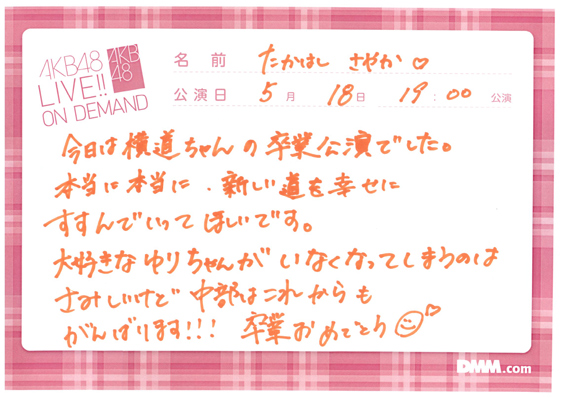 AKB48
LIVE!!
ON DEMAND
AKB
48
名 前 たかはし さやか♡
公演日 5月 18日 19:00 公演
今日は横道ちゃんの卒業公演でした。
本当に本当に、新しい道を幸せに
すすんでいってほしいです。
大好きなゆりちゃんがいなくなってしまうのは
さみしいけど中部はこれからも
がんばります!!! 卒業おめでとう
DMM.com